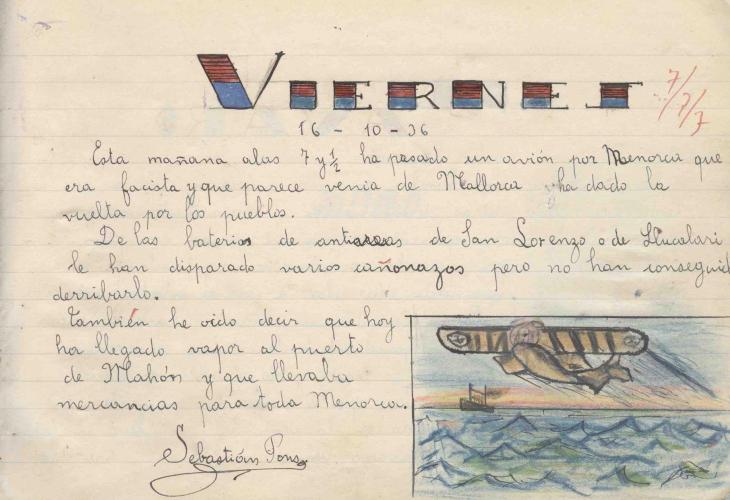 VIERNES
7/7/7
16 - 10 - 36
Esta mañana alas 7 y ½ ha pasado un avión por Menorca que
era facista y que parece venia de Mallorca ha dado la
vuelta por los pueblos.
De las baterias de antiareas de San Lorenzo o de Llucalari
le han disparado varios cañonazos pero no han conseguid
derribarlo.
También he oido decir que hoy
ha llegado vapor al puerto
de Mahón y que llevaba
mercancias para toda Menorca.
Sebastián Pons.